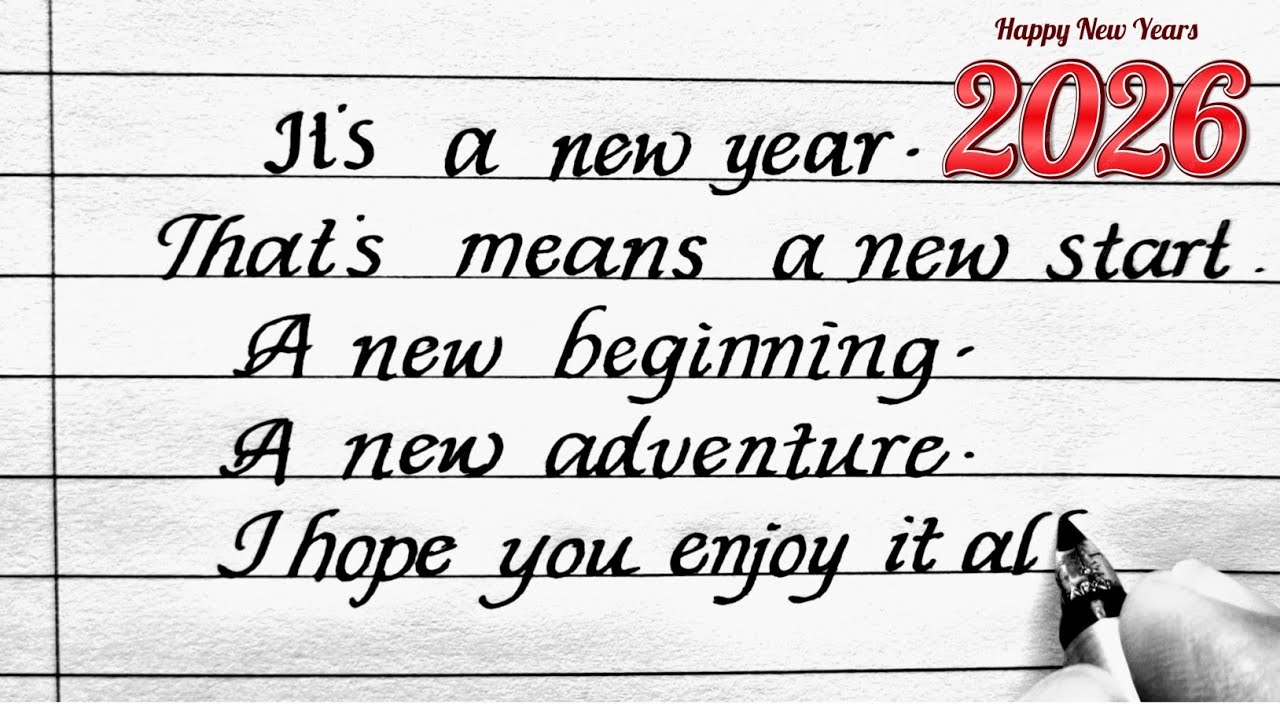 Happy New Years
2026
It's a new year.
That's means a new start.
A new beginning.
A new adventure.
I hope you enjoy it al